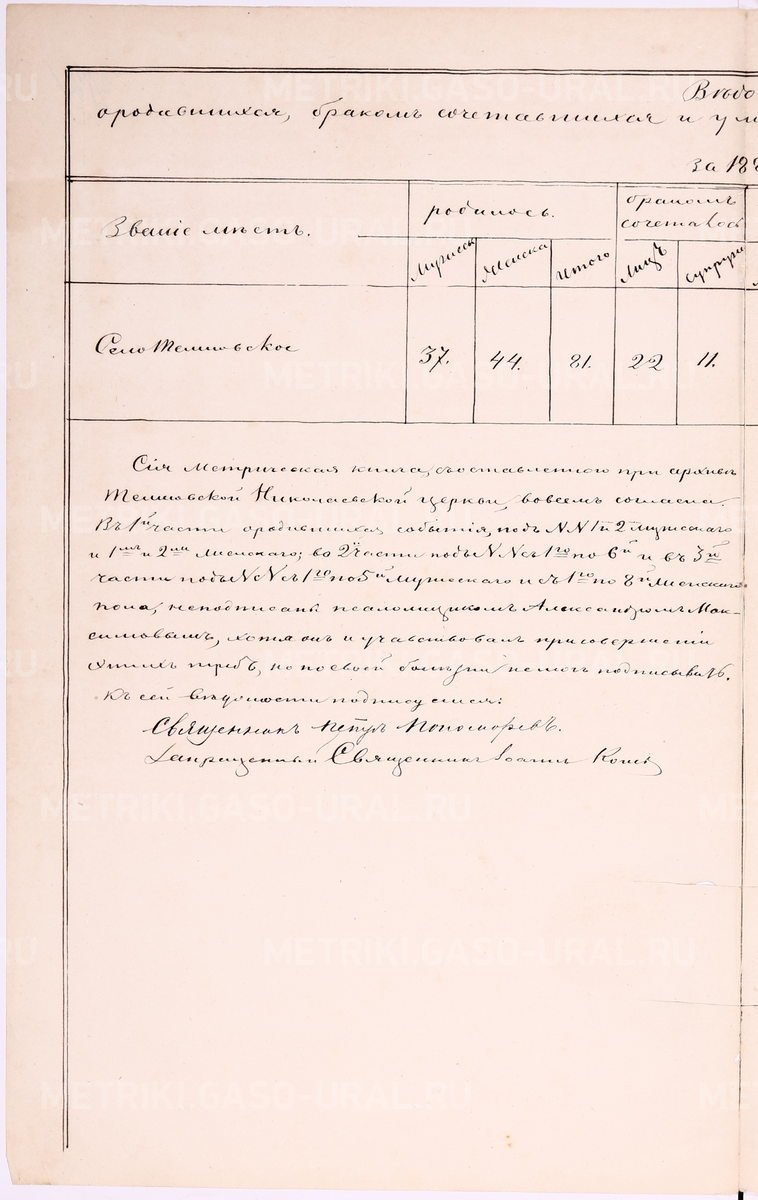 Вѣдо
ородившихся, бракомъ сочетавшихся и ум
за 188
Званіе мѣстъ.
родилось.
бракомъ
сочеталось
Мужеска
Женска
Итого
Лицъ
супруж
Село
37.
44.
81.
22
11.
Сія метрическая книга, съ оставленного при архивѣ
Николаевской церкви, вовсемъ согласна.
Въ 1й части ородившихся событія, подъ NN 1й 2й мужескаго
и 1мъ и 2мъ женскаго; во 2й части подъ NN съ 1го по 6й и въ 3й
части подъ NN съ 1го по 5й мужескаго и съ 1го по 8й женскаго
пола, неподписаны псаломщикомъ Александромъ Мак-
симовымъ, хотя онъ и участвовалъ присовершеніи
этихъ требъ, но посвоей болѣзни немогъ подписывать.
Къ сей вѣдомости подписуемся:
Священникъ Петръ Пономаревъ.
Запрещенный Священникъ Іоаннъ
METRIKI.GASO-URAL.RU